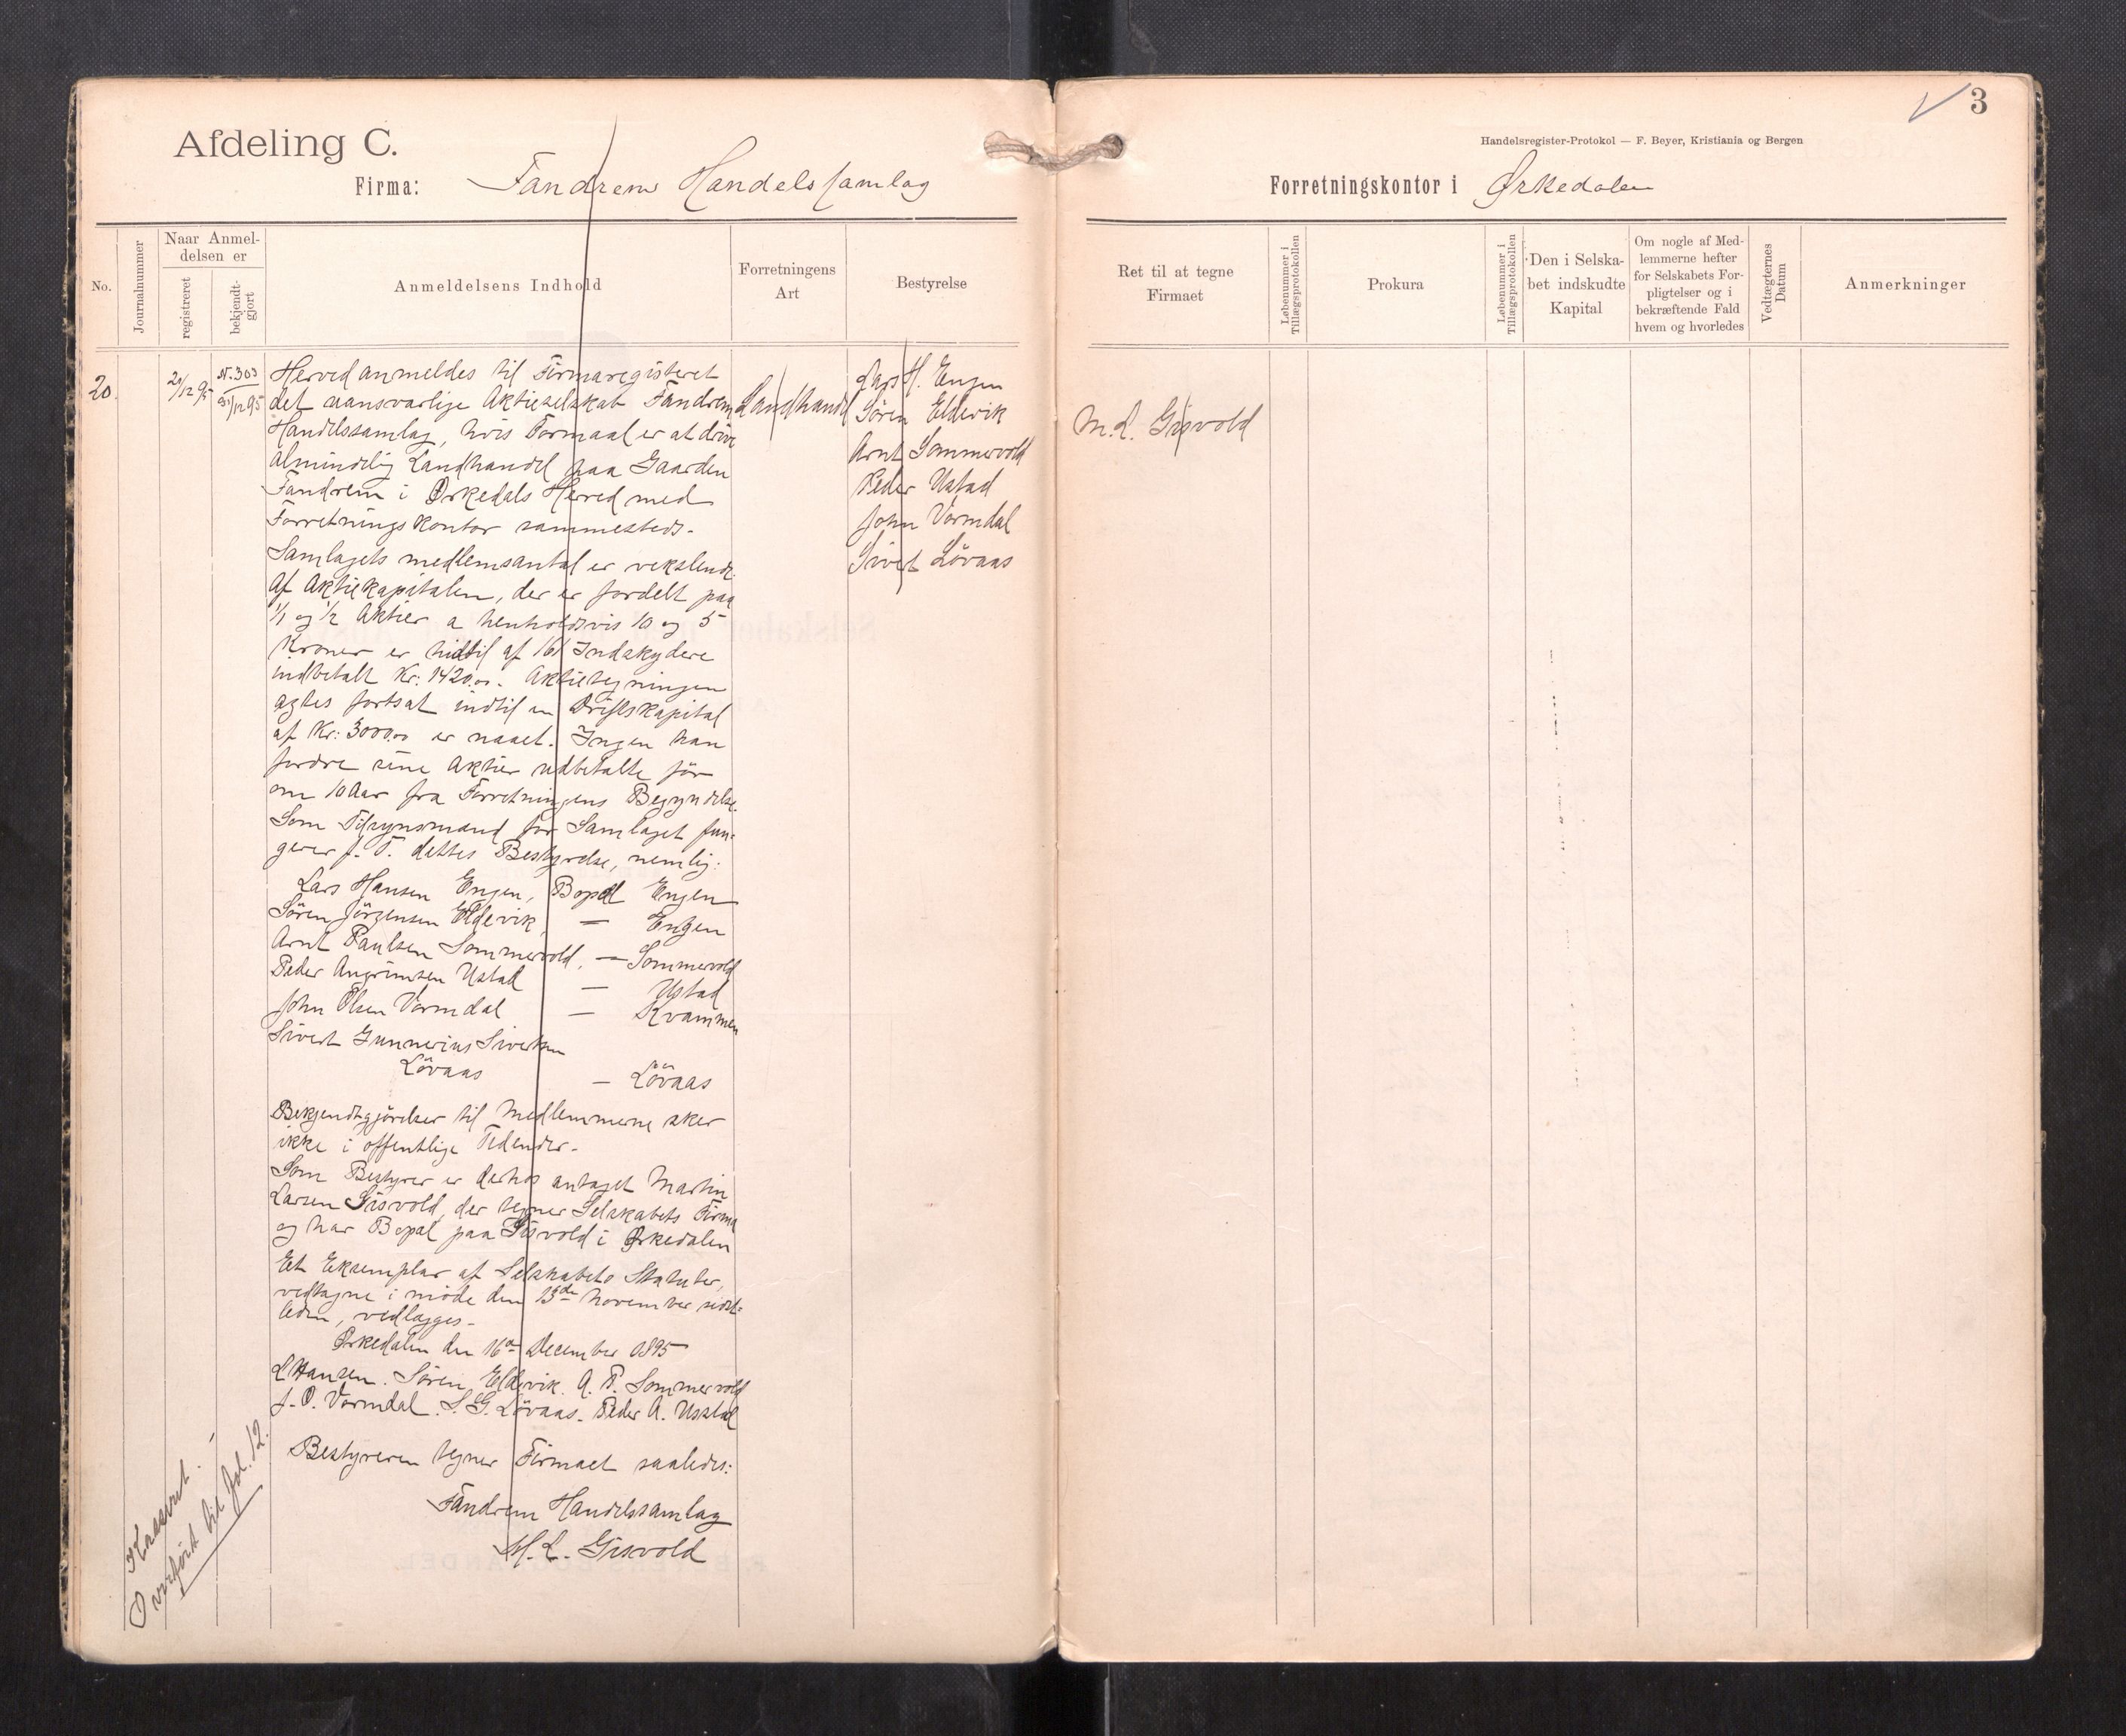 3
Afdeling C.
Handelsregister-Protokol — F. Beyer, Kristiania og Bergen
Firma: Fandrems Handelssamlag
Forretningskontor i Ørkedalen
No.
Journalnummer
Naar Anmel-
delsen er
registreret
bekjendt-
gjort
Anmeldelsens Indhold
Forretningens
Art
Bestyrelse
Ret til at tegne
Firmaet
Løbenummer i
Tillægsprotokollen
Prokura
Løbenummer i
Tillægsprotokollen
Den i Selska-
bet indskudte
Kapital
Om nogle af Med-
lemmerne hefter
for Selskabets For-
pligtelser og i
bekræftende Fald
hvem og hvorledes
Vedtægternes
Datum
Anmerkninger
20.
N. 303
31/12 95
Herved anmeldes til Firmaregisteret
det uansvarlige Aktieselskab Fandrem
Handelssamlag, hvis Formaal er at drive
almindelig Landhandel paa Gaarden
Fandrem i Ørkedals Herred med
Forretningskontor sammesteds.
Samlagets medlemsantal er vekslende.
Af Aktiekapitalen, der er fordelt paa
1/1 og 1/2 Aktier a henholdsvis 10 og 5
Kroner er hidtil af 161 Indskydere
indbetalt Kr: 1420.00. Aktietegningen
agtes fortsat indtil en Driftskapital
af Kr: 3000.00 er naaet. Ingen kan
fordre sine Aktier udbetalte før
om 10 Aar fra Forretningens Begyndelse.
Som Tilsynsmænd for Samlaget fun-
gerer f. T. dettes Bestyrelse, nemlig:
Lars Hansen Engen, Bopæl Engen
Sören Jörgensen Eldevik, — Engen
Arnt Paulsen Sommervold, — Sommervold
Peder Angrimsen Ustad — Ustad
John Olsen Vormdal — Kvammen
Sivert Gunnerius Sivertsen
Lövaas — Lövaas
Bekjendtgjörelser til Medlemmerne sker
ikke i offentlige Tidender.
Som Bestyrer er derhos antaget Martin
Larsen Gisvold, der tegner Selskabets Firma
og har Bopæl paa Gisvold i Ørkedalen
Et Eksemplar af Selskabets Statuter,
vedtagne i möde den 13de November sidst-
leden, vedlægges.
Ørkedalen den 16de December 1895
L Hansen. Sören Eldevik. A. P. Sommervold
J. O. Vormdal. S. G. Lövaas. Peder A. Ustad
Bestyreren tegner Firmaet saaledes:
Fandrem Handelssamlag
M. L. Gisvold
Landhandel
Lars H. Engen
Sören Eldevik
Arnt Sommervold
Peder Ustad
John Vormdal
Sivert Lövaas
M. L. Gisvold
Kasseret.
Overført til fol. 12.